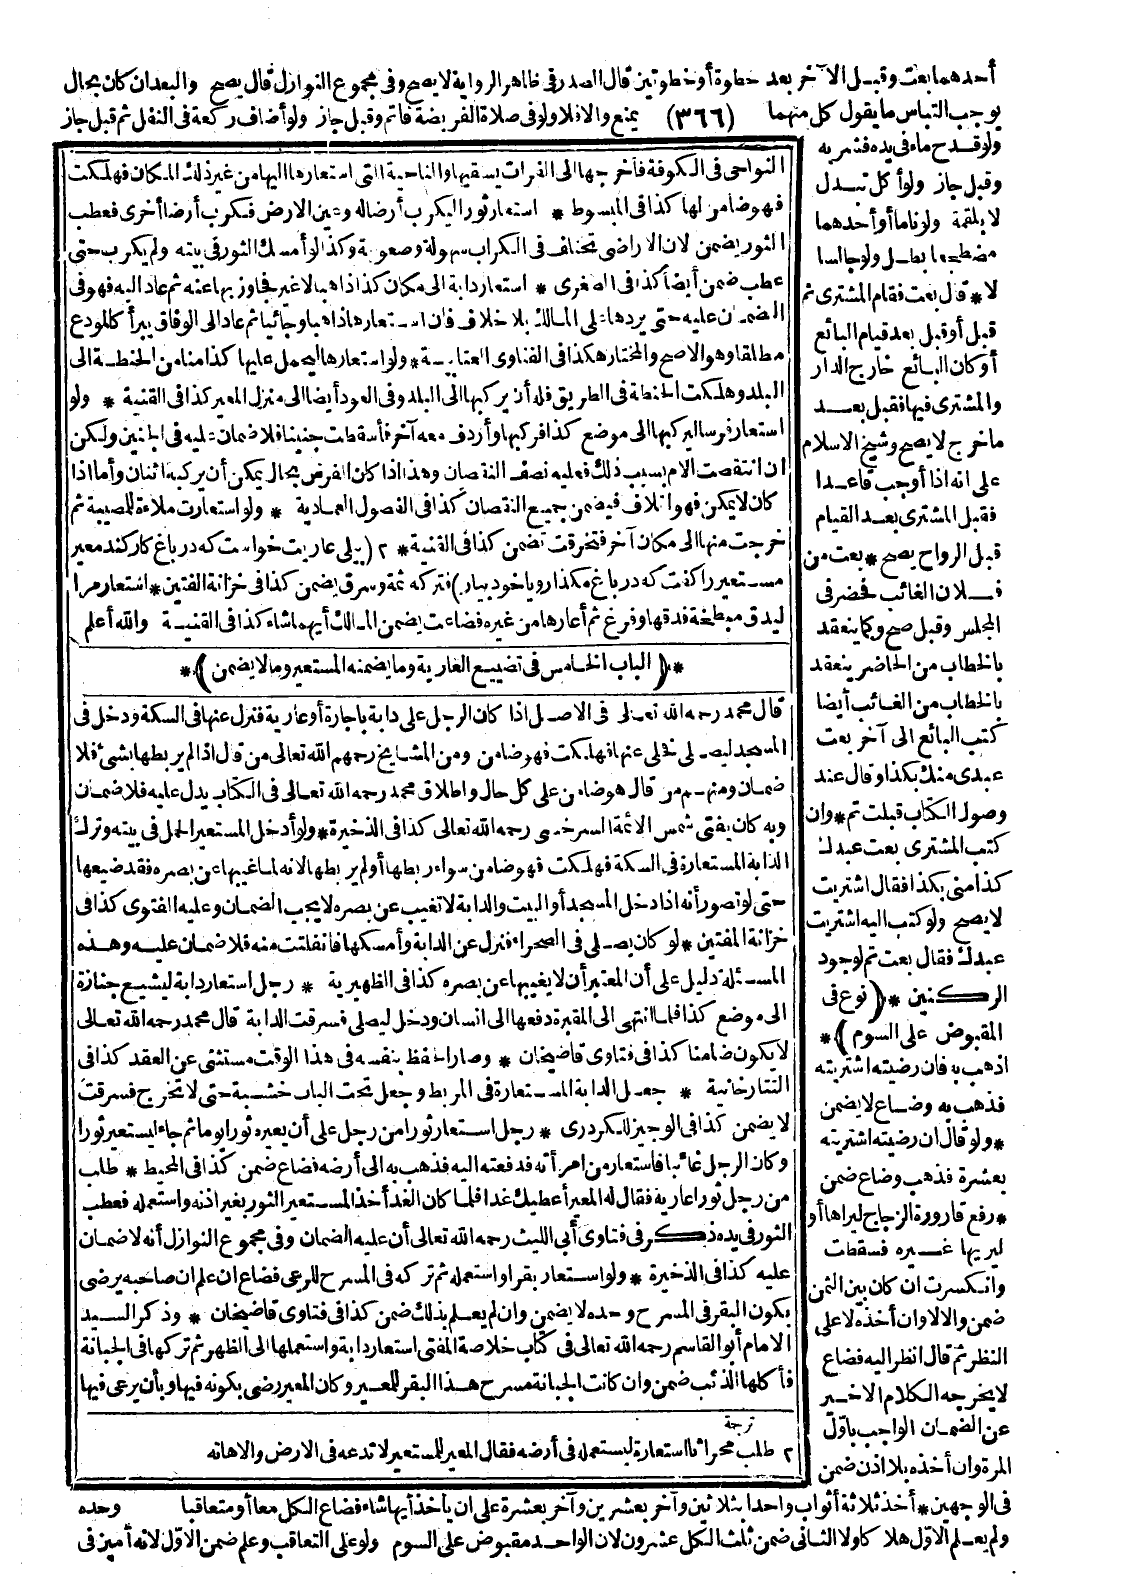 أحدهما بعت وقبل الآخر بعد خطوة أو خطوتين قال الصدر في ظاهر الرواية لا يصح وفي مجموع النوازل قال يصح والبعد ان كان بحال
يوجب التباس ما يقول كل منهما (٣٦٦) يمنع والا فلا ولو في صلاة الفريضة فأتم وقبل جاز ولو أضاف ركعة في النفل ثم قبل جاز
ولو قدح ماء في يده فشربه
وقبل جاز ولو أكل تبدل
لا بلقمة ولو ناما أو أحدهما
مضطجعا بطل ولو جالسا
لا * قال بعت فقام المشترى ثم
قبل أو قبل بعد قيام البائع
أو كان البائع خارج الدار
والمشترى فيها فقبل بعد
ما خرج لا يصح وشيخ الاسلام
على انه اذا أوجب قاعدا
فقبل المشترى بعد القيام
قبل الرواح يصح * بعت من
فلان الغائب فحضر في
المجلس وقبل صح وكما ينعقد
بالخطاب من الحاضر ينعقد
بالخطاب من الغائب أيضا
كتب البائع الى آخر بعت
عبدى منك بكذا وقال عند
وصول الكتاب قبلت تم * وان
كتب المشترى بعت عبدك
كذا منى بكذا فقال اشتريت
لا يصح ولو كتب اليه اشتريت
عبدك فقال بعت تم لوجود
الركنين * (نوع في
المقبوض على السوم) *
اذهب به فان رضيته اشتريته
فذهب به وضاع لا يضمن
* ولو قال ان رضيته اشتريته
بعشرة فذهب وضاع ضمن
* رفع قارورة الزجاج ليراها أو
ليريها غيره فسقطت
وانكسرت ان كان بين الثمن
ضمن والا لا وان أخذه لا على
النظر ثم قال انظر اليه فضاع
لا يخرجه الكلام الاخير
عن الضمان الواجب بأول
المرة وان أخذه بلا اذن ضمن
النواحى في الكوفة فأخرجها الى الفرات يسقيها والناحية التى استعارها اليها من غير ذلك المكان فهلكت
فهو ضامن لها كذا في المبسوط * استعار ثورا ليكرب أرضا له وعين الارض فكرب أرضا أخرى فعطب
الثور يضمن لان الاراضى تختلف في الكراب سهولة وصعوبة وكذا لو أمسك الثور في بيته ولم يكرب حتى
عطب ضمن أيضا كذا في الصغرى * استعار دابة الى مكان كذا ذاهبا لا غير فجاوز بها عنه ثم عاد اليه فهو في
الضمان عليه حتى يردها على المالك بلا خلاف فان استعارها ذاهبا وجائيا ثم عاد الى الوفاق يبرأ كالمودع
مطلقا وهو الاصح والمختار هكذا في الفتاوى العتابية * ولو استعارها ليحمل عليها كذا منا من الحنطة الى
البلد وهلكت الحنطة في الطريق فله أن يركبها الى البلد وفي العود أيضا الى منزل المعير كذا في القنية * ولو
استعار فرسا ليركبها الى موضع كذا فركبها وأردف معه آخر فأسقطت جنينا فلا ضمان عليه في الجنين ولكن
ان انتقصت الام بسبب ذلك فعليه نصف النقصان وهذا اذا كان الفرس بحال يمكن أن يركبه اثنان وأما اذا
كان لا يمكن فهو اتلاف فيضمن جميع النقصان كذا في الفصول العمادية * ولو استعارت ملاءة للمصيبة ثم
خرجت منها الى مكان آخر فتخرقت تضمن كذا في القنية * ٢ (بيلى عاريت خواست كه در باغ كار كند معير
مستعير را كفت كه در باغ مكذار وبا خود بيار) فتركه ثمة وسرق يضمن كذا في خزانة المفتين * استعار مرا
ليدق مبطخة فدقها وفرغ ثم أعارها من غيره فضاعت يضمن المالك أيهما شاء كذا في القنية والله أعلم
* (الباب الخامس في تضييع العارية وما يضمنه المستعير وما لا يضمن) *
قال محمد رحمه الله تعالى في الاصل اذا كان الرجل على دابة باجارة أو عارية فنزل عنها في السكة ودخل في
المسجد ليصلى فخلى عنها فهلكت فهو ضامن ومن المشايخ رحمهم الله تعالى من قال اذا لم يربطها بشئ فلا
ضمان ومنهم من قال هو ضامن على كل حال واطلاق محمد رحمه الله تعالى في الكتاب يدل عليه فلا ضمان
وبه كان يفتى شمس الائمة السرخسى رحمه الله تعالى كذا في الذخيرة * ولو أدخل المستعير الحمل في بيته وترك
الدابة المستعارة في السكة فهلكت فهو ضامن سواء ربطها أو لم يربطها لانه لما غيبها عن بصره فقد ضيعها
حتى لو تصور أنه اذا دخل المسجد أو البيت والدابة لا تغيب عن بصره لا يجب الضمان وعليه الفتوى كذا في
خزانة المفتين * لو كان يصلى في الصحراء فنزل عن الدابة وأمسكها فانفلتت منه فلا ضمان عليه وهذه
المسئلة دليل على أن المعتبر أن لا يغيبها عن بصره كذا في الظهيرية * رجل استعار دابة ليشيع جنازة
الى موضع كذا فلما انتهى الى المقبرة دفعها الى انسان ودخل ليصلى فسرقت الدابة قال محمد رحمه الله تعالى
لا يكون ضامنا كذا في فتاوى قاضيخان * وصار الحفظ بنفسه في هذا الوقت مستثنى عن العقد كذا في
التتارخانية * جعل الدابة المستعارة في المربط وجعل تحت الباب خشبة حتى لا تخرج فسرقت
لا يضمن كذا في الوجيز للكردرى * رجل استعار ثورا من رجل على أن يعيره ثورا يوما ثم جاء ليستعير ثورا
وكان الرجل غائبا فاستعار من امرأته فدفعته اليه فذهب به الى أرضه فضاع ضمن كذا في المحيط * طلب
من رجل ثورا عارية فقال له المعير أعطيك غدا فلما كان الغد أخذ المستعير الثور بغير اذنه واستعمله فعطب
الثور في يده ذكر في فتاوى أبى الليث رحمه الله تعالى أن عليه الضمان وفي مجموع النوازل أنه لا ضمان
عليه كذا في الذخيرة * ولو استعار بقرا واستعمله ثم تركه في المسرح للرعى فضاع ان علم ان صاحبه يرضى
بكون البقر في المسرح وحده لا يضمن وان لم يعلم بذلك ضمن كذا في فتاوى قاضيخان * وذكر السيد
الامام أبو القاسم رحمه الله تعالى في كتاب خلاصة المفتى استعار دابة واستعملها الى الظهر ثم تركها في الجبانة
فأكلها الذئب ضمن وان كانت الجبانة مسرح هذا البقر للمعير وكان المعير رضى بكونه فيها وبأن يرعى فيها
ترجة
٢ طلب محراثا استعارة ليستعمله في أرضه فقال المعير للمستعير لا تدعه في الارض والا هاته
في الوجهين * أخذ ثلاثة أثواب واحدا بثلاثين وآخر بعشرين وآخر بعشرة على ان يأخذ أيها شاء فضاع الكل معا أو متعاقبا وحده
ولم يعلم الاول هلاكا ولا الثانى ضمن ثلث الكل عشرون لان الواحد مقبوض على السوم ولو على التعاقب وعلم ضمن الاول لانه أمين في